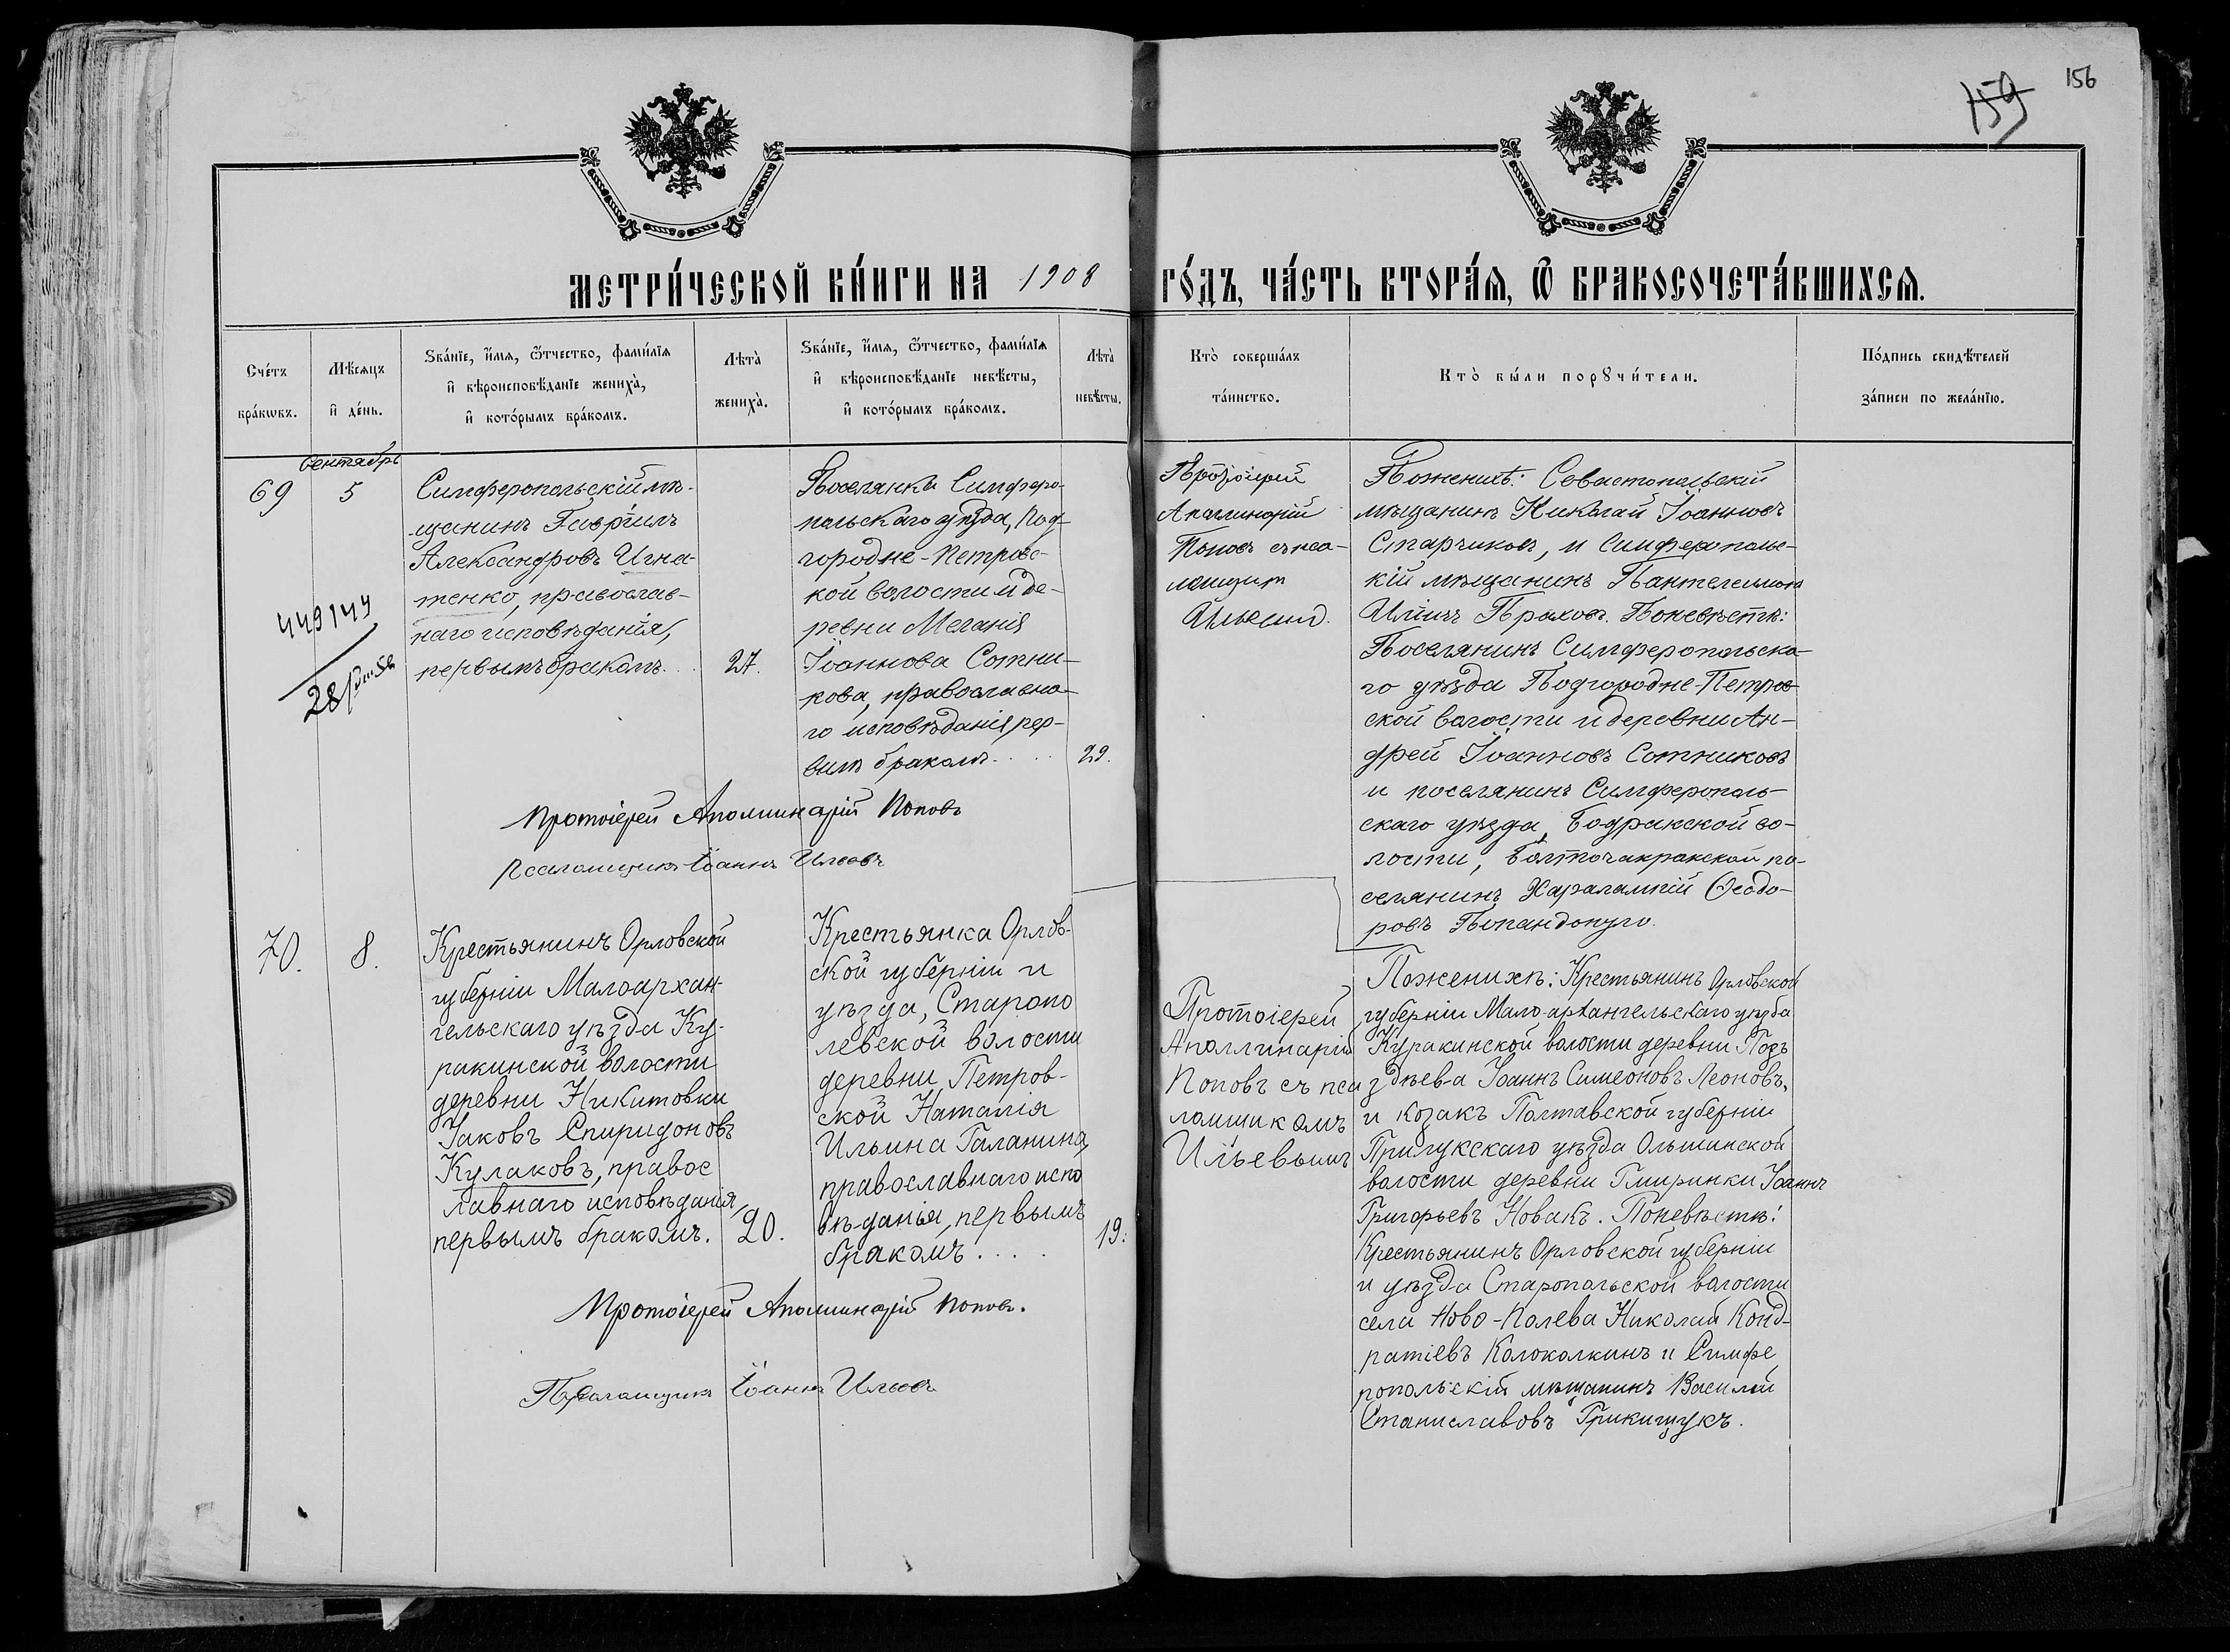 159
156
МЕТРИ́ЧЕСКОЙ КНИ́ГИ НА 1908 ГО́ДЪ, ЧА́СТЬ ВТОРА́Я, Ѿ БРАКОСОЧЕТА́ВШИХСЯ.
Сче́тъ
бра́кѡвъ.
Мѣ́сяцъ
и҆ де́нь.
Ѕва́нїе, и҆́мѧ, ѻ҆́тчество, фами́лїѧ
и҆ вѣроисповѣ́данїе жениха̀,
и҆ кото́рымъ бра́комъ.
Лѣта̀
жениха̀.
Ѕва́нїе, и҆́мѧ, ѻ҆́тчество, фами́лїѧ
и҆ вѣроисповѣ́данїе невѣ́сты,
и҆ кото́рымъ бра́комъ.
Лѣта̀
невѣ́сты.
Кто̀ соверша́лъ
та́инство.
Кто̀ бы́ли порꙋчи́тели.
По́дпись свидѣ́телей
за́писи по жела́нїю.
Сентябрь
69
5
Симферопольскій мѣ-
щанинъ Гавріилъ
Александровъ Игна-
тенко, православ-
наго исповѣданія,
первымъ бракомъ. .
27.
449144
28
Поселянка Симферо-
польскаго уѣзда, Под-
городне-Петров-
кой волости и де-
ревни Меланія
Іоаннова Сотни-
кова, православна-
го исповѣданія, пер-
вымъ бракомъ. . . .
29.
Протоіерей
Аполлинарій
Поповъ съ пса-
ломщик
Ильевым.
По женихѣ: Севастопольскій
мѣщанинъ Николай Іоанновъ
Старчиковъ, и Симферополь-
кій мѣщанинъ Пантелеимонъ
Иліинъ Прыховъ. По невѣстѣ:
Поселянинъ Симферопольска-
го уѣзда Подгородне-Петров-
ской волости и деревни Ан-
дрей Іоанновъ Сотниковъ
и поселянинъ Симферополь-
скаго уѣзда, Бодракской во-
лости, Болточакракской по-
селянинъ Харалампій Ѳеодо-
ровъ Попандопуло.
Протоіерей Аполлинарій Поповъ
Псаломщикъ Іоаннъ Ильевъ
70.
8.
Крестьянинъ Орловской
губерніи Малоархан-
гельскаго уѣзда Ку-
ракинской волости
деревни Никитовки
Іаковъ Спиридоновъ
Кулаковъ, правос
лавнаго исповѣданія,
первымъ бракомъ.
20.
Крестьянка Орлов-
ской губерніи и
уѣзда, Старопо
левской волости
деревни Петров-
ской Наталія
Ильина Галанина,
православнаго испо
вѣданья, первымъ
бракомъ . . . .
19.
Протоіерей
Аполлинарій
Поповъ съ пса
ломщикомъ
Ильевымъ
По женихѣ: Крестьянинъ Орловской
губерніи Мало-архангельскаго уѣзда
Куракинской волости деревни Подъ
зднев-а Іоаннъ Симеоновъ Леоновъ,
и козакъ Полтавской губерніи
Прилукскаго уѣзда Ольшинской
волости деревни Гмиринки Іоаннъ
Григорьевъ Новакъ. По невѣстѣ:
Крестьянинъ Орловской губерніи
и уѣзда Старопольской волости
села Ново-Полева Николай Конд-
ратіевъ Колоколкинъ и Симфе
ропольскій мѣщанинъ Василій
Станиславовъ Грикищукъ.
Протоіерей Аполлинарій Поповъ.
Псаломщикъ Іоаннъ Ильевъ